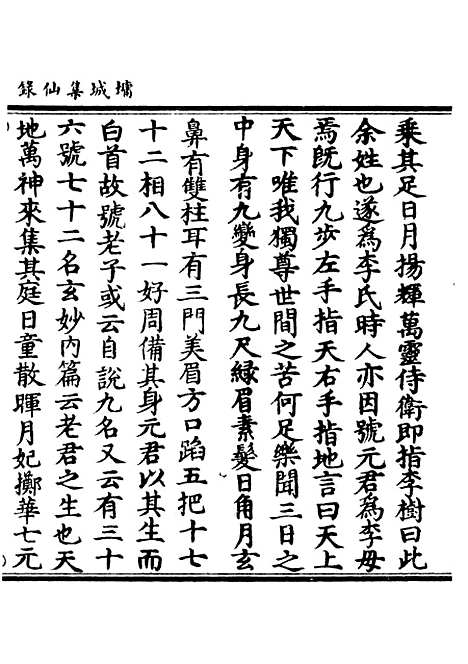 墉城集仙錄
乘其足日月揚輝萬靈侍衛即指李樹曰此
余姓也遂為李氏時人亦因號元君為李母
焉旣行九步左手指天右手指地言曰天上
天下唯我獨尊世間之苦何足樂聞三日之
中身有九變身長九尺緑眉素髮日角月玄
鼻有雙柱耳有三門美眉方口蹈五把十七
十二相八十一好周備其身元君以其生而
白首故號老子或云自說九名又云有三十
六號七十二名玄妙內篇云老君之生也天
地萬神來集其庭日童散暉月妃擲華七元